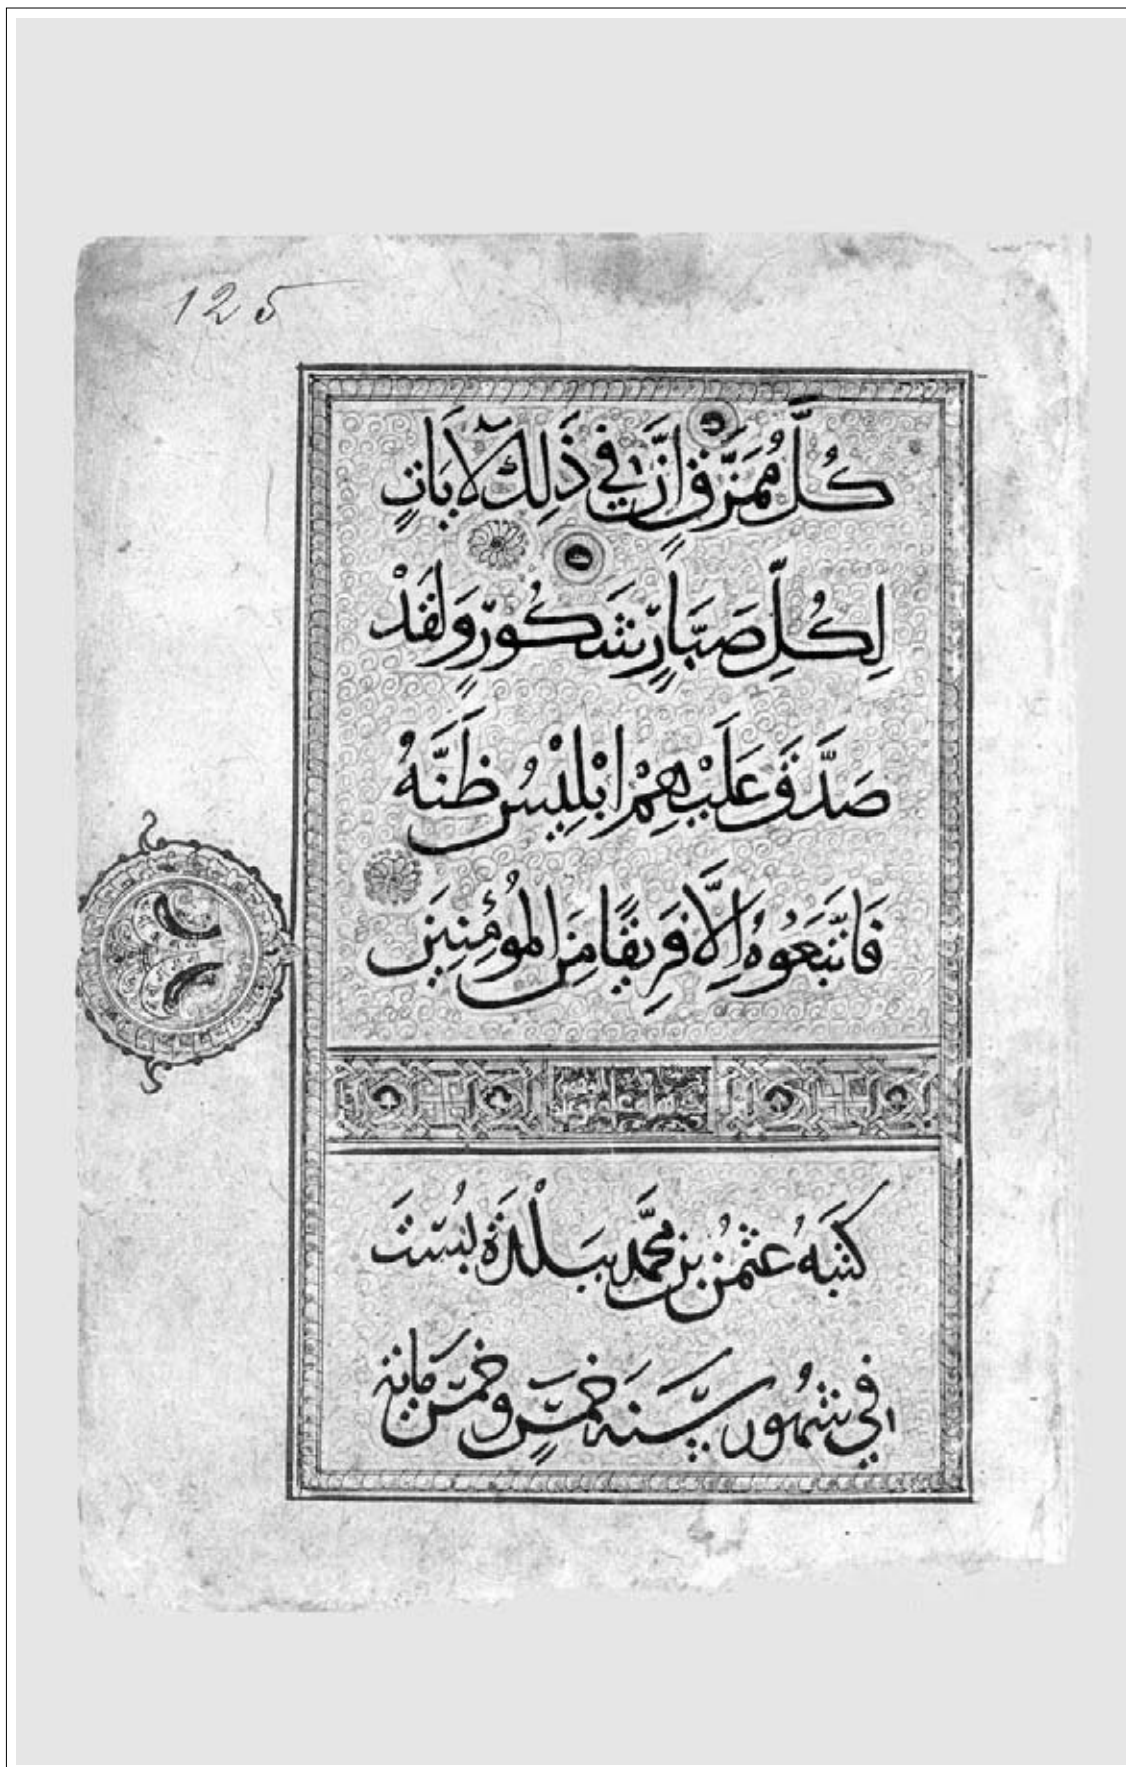 125
كُلَّ مُمَزَّقٍ اِنَّ فِي ذَلِكَ لَآيَاتٍ
لِكُلِّ صَبَّارٍ شَكُورٍ وَلَقَدْ
صَدَّقَ عَلَيْهِمْ اِبْلِيْسُ ظَنَّهُ
فَاتَّبَعُوهُ اِلَّا فَرِيقًا مِنَ الْمُؤْمِنِيَن
كَتَبَهُ عُثمٰنُ بنُ مُحَمَّد بِبَلْدَة بُسْتَ
في شُهُور سَنَة خَمسٍ وخَمسَ مَائة